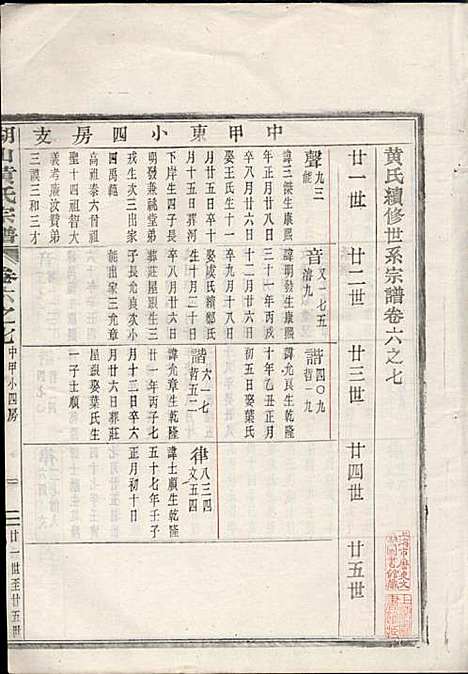 黃氏續修世系宗譜卷六之七
廿一世
廿二世
廿三世
廿四世
廿五世
中甲東小四房支
聲 九三
能
諱三傑生康熙
八年正月廿八
卒八月廿六日
娶王氏生十一
月廿五日卒十
月十五日葬河
下岸生四子長
九章兼祧堂弟
戌生次三出家
四禹範
高祖泰六曾祖
聖十四祖智大
義考廉汝賛弟
三謨三和三才
音 又一七五
濬九
諱明發生康熙
三十一年丙戌
十二月廿八日
卒八月廿四日
娶虞氏續鄭氏
生十月二十日
卒八月廿八日
葬莊屋跟生三
子長允良次小
出家三允章
諧 四〇九
晳一九
諱允良生乾隆
十年乙丑正月
初五日娶葉氏
諧 六一七
晳五二
諱允章生乾隆
廿一年丙子七
月廿六日葬莊
屋跟娶葉氏生
一子士順
律 八三四
文五四
諱士順生乾隆
五十七年壬子
正月初十日
湖山黃氏宗譜
卷六之七
中甲小四房
一
廿一世至廿五世